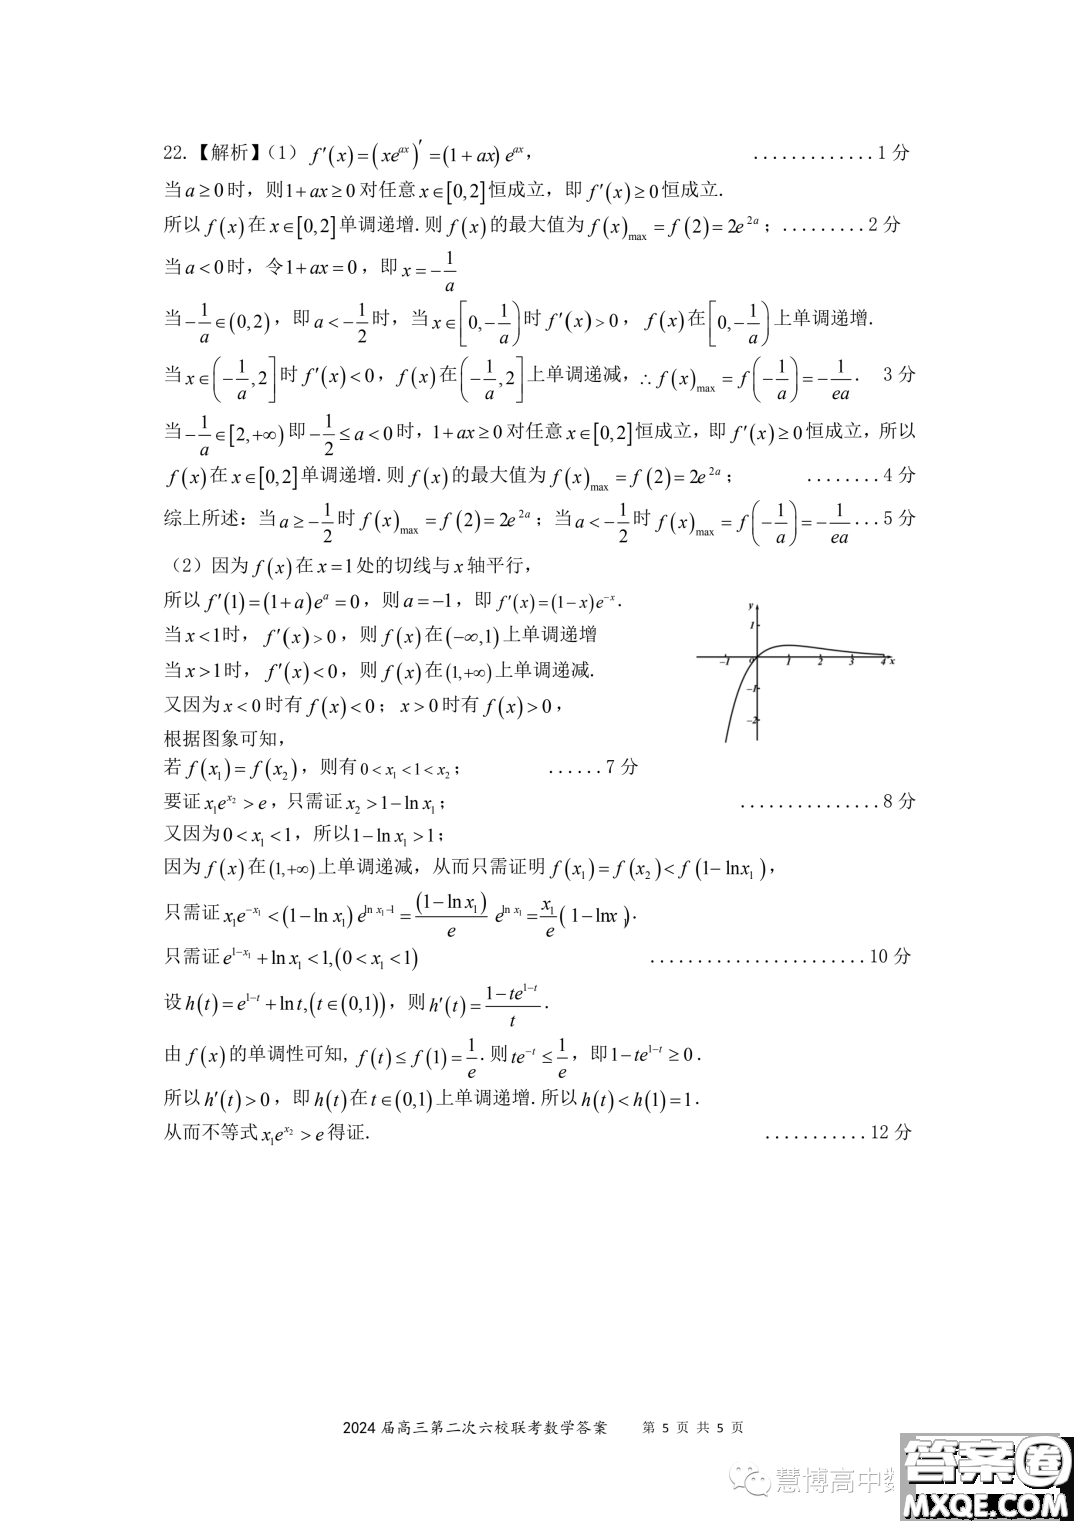 22.【解析】（1） f′(x)=(xe^{ax})′=(1+ax)e^{ax}， .............1 分
当 a≥0 时，则 1+ax≥0 对任意 x∈[0,2] 恒成立，即 f′(x)≥0 恒成立.
所以 f(x) 在 x∈[0,2] 单调递增. 则 f(x) 的最大值为 f(x)_{max}=f(2)=2e^{2a}；.........2 分
当 a<0 时，令 1+ax=0，即 x=-\frac{1}{a}
当 -\frac{1}{a}∈(0,2)，即 a<-\frac{1}{2} 时，当 x∈[0,-\frac{1}{a}) 时 f′(x)>0，f(x) 在 [0,-\frac{1}{a}) 上单调递增.
当 x∈(-\frac{1}{a},2] 时 f′(x)<0，f(x) 在 (-\frac{1}{a},2] 上单调递减，∴f(x)_{max}=f(-\frac{1}{a})=-\frac{1}{ea}. 3 分
当 -\frac{1}{a}∈[2,+∞) 即 -\frac{1}{2}≤a<0 时，1+ax≥0 对任意 x∈[0,2] 恒成立，即 f′(x)≥0 恒成立，所以
f(x) 在 x∈[0,2] 单调递增. 则 f(x) 的最大值为 f(x)_{max}=f(2)=2e^{2a}； ........4 分
综上所述：当 a≥-\frac{1}{2} 时 f(x)_{max}=f(2)=2e^{2a}；当 a<-\frac{1}{2} 时 f(x)_{max}=f(-\frac{1}{a})=-\frac{1}{ea}...5 分
（2）因为 f(x) 在 x=1 处的切线与 x 轴平行，
所以 f′(1)=(1+a)e^{a}=0，则 a=-1，即 f′(x)=(1-x)e^{-x}.
当 x<1 时，f′(x)>0，则 f(x) 在 (-∞,1) 上单调递增
当 x>1 时，f′(x)<0，则 f(x) 在 (1,+∞) 上单调递减.
又因为 x<0 时有 f(x)<0；x>0 时有 f(x)>0，
根据图象可知，
y
1
-1 O 1 2 3 4 x
-1
-2
若 f(x_1)=f(x_2)，则有 0<x_1<1<x_2； ......7 分
要证 x_1e^{x_2}>e，只需证 x_2>1-ln x_1； ...............8 分
又因为 0<x_1<1，所以 1-ln x_1>1；
因为 f(x) 在 (1,+∞) 上单调递减，从而只需证明 f(x_1)=f(x_2)<f(1-lnx_1)，
只需证 x_1e^{-x_1}<(1-ln x_1)e^{ln x_1-1}=\frac{(1-ln x_1)}{e}e^{ln x_1}=\frac{x_1}{e}(1-lnx_1).
只需证 e^{1-x_1}+ln x_1<1,(0<x_1<1) .......................10 分
设 h(t)=e^{1-t}+ln t,(t∈(0,1))，则 h′(t)=\frac{1-te^{1-t}}{t}.
由 f(x) 的单调性可知, f(t)≤f(1)=\frac{1}{e}. 则 te^{-t}≤\frac{1}{e}，即 1-te^{1-t}≥0.
所以 h′(t)>0，即 h(t) 在 t∈(0,1) 上单调递增. 所以 h(t)<h(1)=1.
从而不等式 x_1e^{x_2}>e 得证. ...........12 分
2024 届高三第二次六校联考数学答案 第 5 页 共 5 页
慧博高中数
答案圈
MXQE.COM